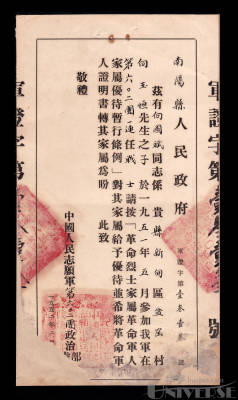 軍證字第 號
南陽縣人民政府
軍證字第壹叁 號
茲有何國斌同志係貴縣新甸區 村
何玉 先生之子於一九五一年五月參加我軍在
第六〇二團一連任戰士請按「革命烈士家屬革命軍人
家屬優待暫行條例」對其家屬給予優待並希將革命軍
人證明書轉其家屬為盼 此致
敬禮
中國人民志願軍第 二團政治 部
軍證字第
UNIVERSE